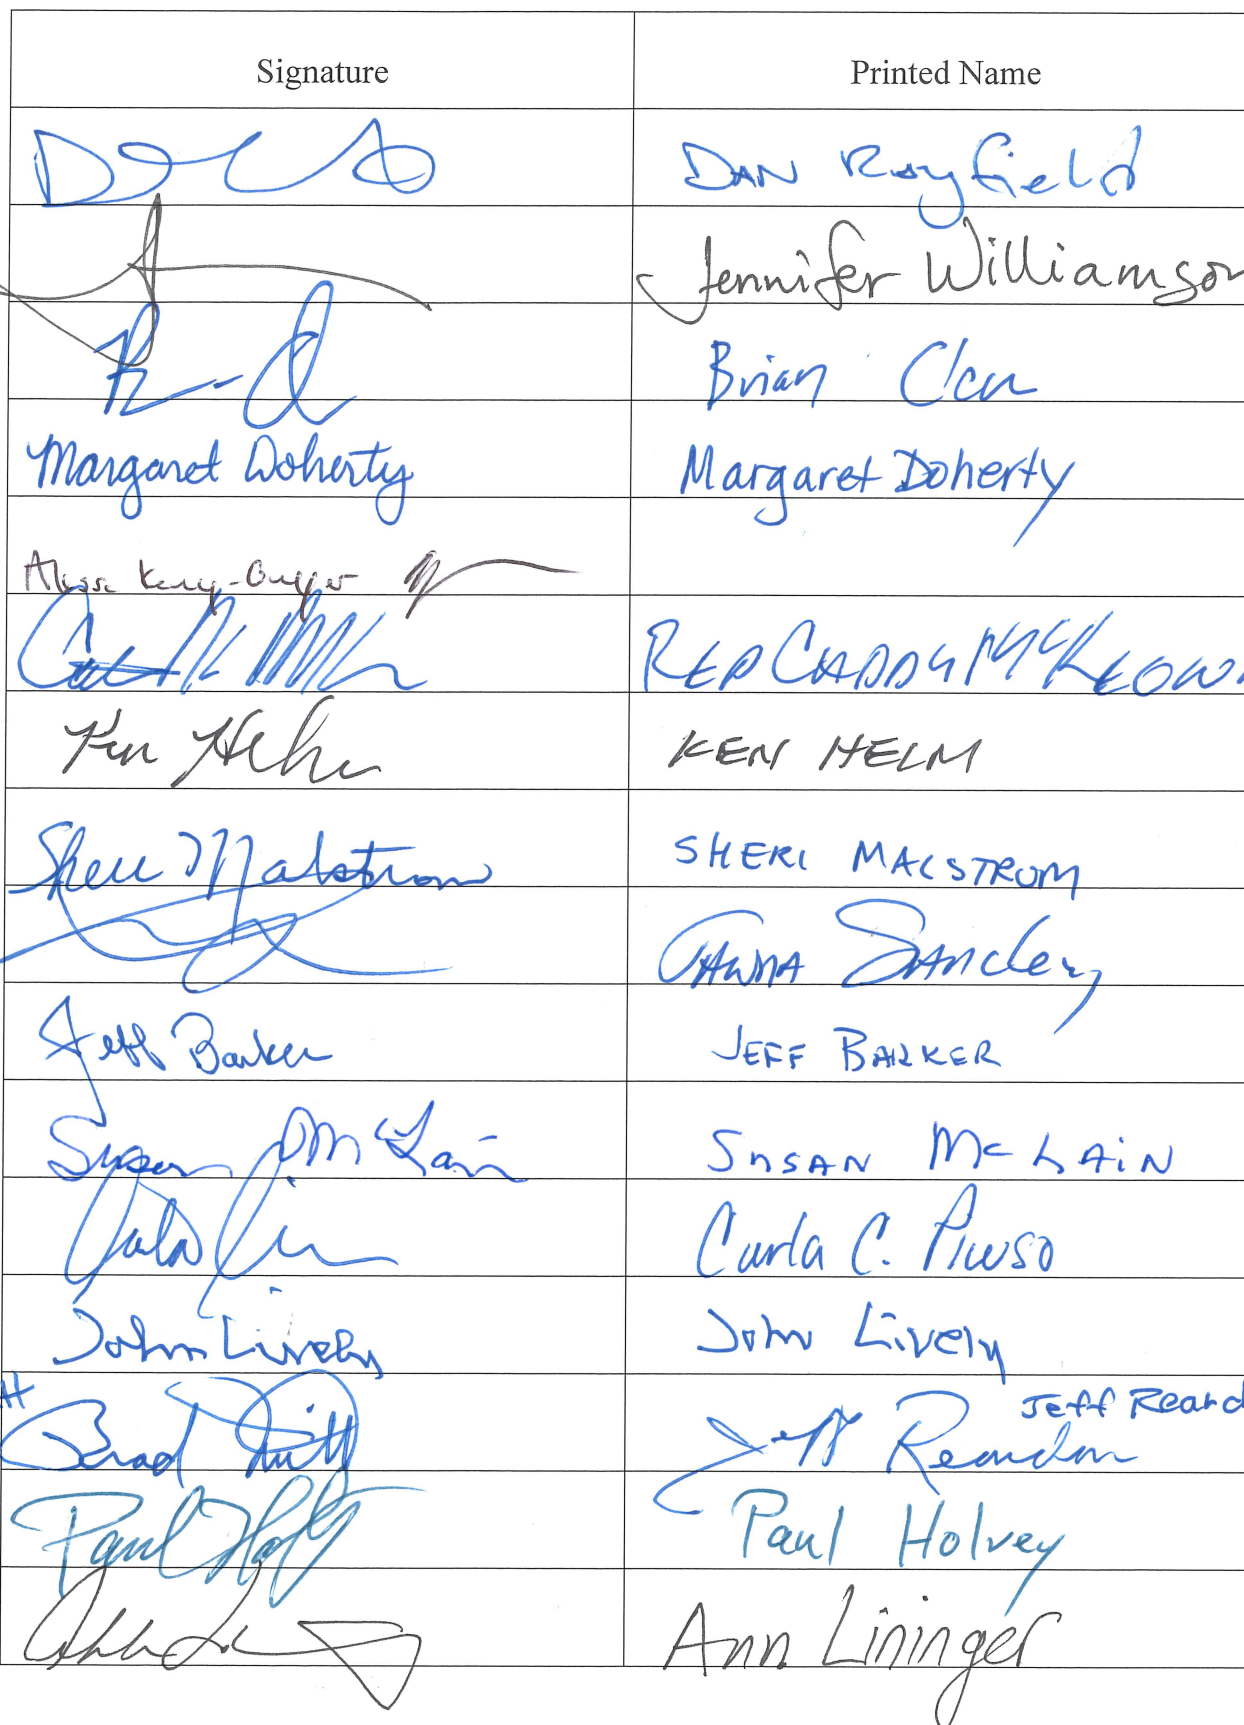 Signature Printed Name
DAN Rayfield
Jennifer Williamson
Brian Clem
Margaret Doherty Margaret Doherty
Alissa Keny-Guyer
REP CADDY MCKEOW
Ken Helm KEN HELM
Sheri Malstrom SHERI MALSTROM
TAWNA Sanchez
Jeff Barker JEFF BARKER
Susan McLain SUSAN McLAiN
Carla C. Piluso
John Lively John Lively
Brad Witt Jeff Reardon Jeff Reard
Paul Holvey Paul Holvey
Ann Lininger